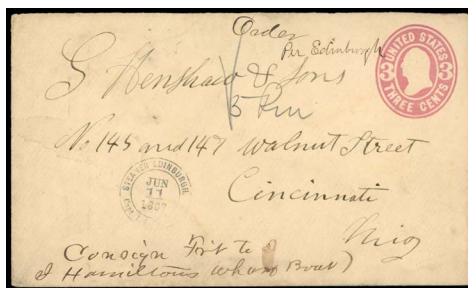 Order
Per Edinburgh
UNITED STATES
3 3
THREE CENTS
G Henshaw & Sons
No 145 and 147 Walnut Street
Cincinnati
Ohio
STEAMER EDINBURGH
JUN
11
1867
Consign Frt to
J Hamiltons Wharf Boat)